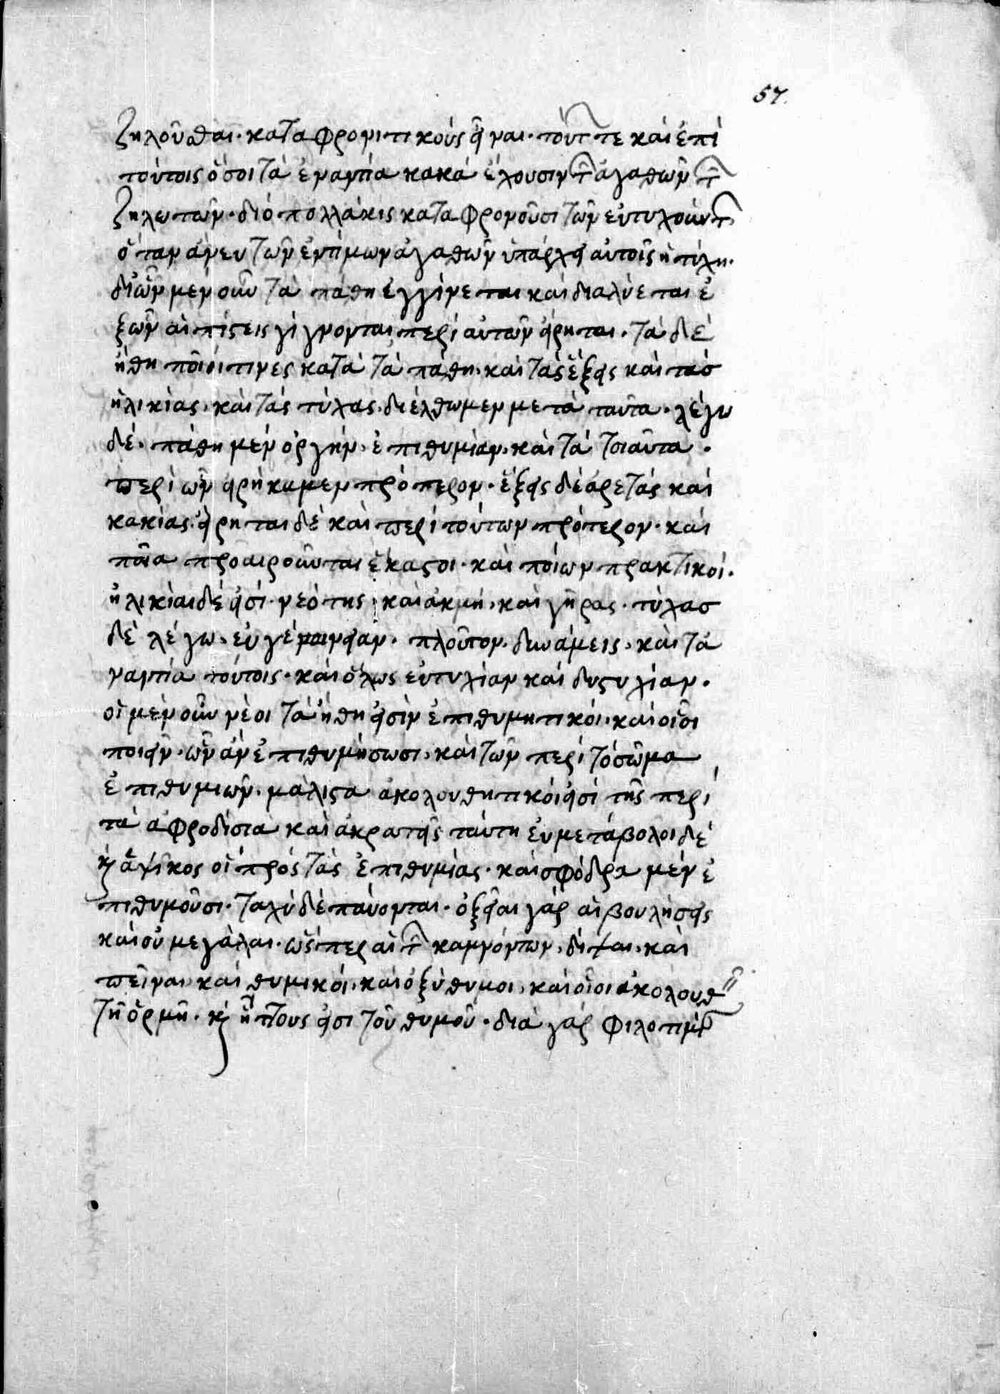 57.
ζηλοῦσθαι· καταφρονητικοὺς εἶναι· τούτων τε καὶ ἐπὶ
τούτοις ὅσοι τὰ ἐναντία κακὰ ἔχουσιν τῶν ἀγαθῶν τῶν
ζηλωτῶν· διὸ πολλάκις καταφρονοῦσι τῶν εὐτυχούντων
ὅταν ἄνευ τῶν ἐντίμων ἀγαθῶν ὑπάρχῃ αὐτοῖς ἡ τύχη·
δι ὧν μὲν οὖν τὰ πάθη ἐγγίνεται καὶ διαλύεται ἐ
ξ ὧν αἱ πίστεις γίγνονται περὶ αὐτῶν εἴρηται· τὰ δὲ
ἤθη ποῖοί τινες κατὰ τὰ πάθη· καὶ τὰς ἕξεις καὶ τὰς
ἡλικίας· καὶ τὰς τύχας· διέλθωμεν μετὰ ταῦτα· λέγω
δὲ· πάθη μὲν ὀργὴν· ἐπιθυμίαν· καὶ τὰ τοιαῦτα·
περὶ ὧν εἰρήκαμεν πρότερον· ἕξεις δὲ ἀρετὰς καὶ
κακίας· εἴρηται δὲ καὶ περὶ τούτων πρότερον· καὶ
ποῖα προαιροῦνται ἕκαστοι· καὶ ποίων πρακτικοί·
ἡλικίαι δέ εἰσί· νεότης· καὶ ἀκμή· καὶ γῆρας· τύχας
δὲ λέγω· εὐγένειαν· πλοῦτον· δυνάμεις· καὶ τὰ
ναντία τούτοις· καὶ ὅλως εὐτυχίαν καὶ δυςτυχίαν·
οἱ μὲν οὖν νέοι τὰ ἤθη εἰσὶν ἐπιθυμητικοί· καὶ οἷοι
ποιεῖν· ὧν ἂν ἐπιθυμήσωσι· καὶ τῶν περὶ τὸ σῶμα
ἐπιθυμιῶν· μάλιστα ἀκολουθητικοί εἰσὶ τῆς περὶ
τὰ ἀφροδίσια καὶ ἀκρατεῖς ταύτῃ εὐμετάβολοι δὲ
καὶ ἁψίκοροι πρὸς τὰς ἐπιθυμίας· καὶ σφόδρα μὲν ἐ
πιθυμοῦσι· ταχὺ δὲ παύονται· ὀξεῖαι γὰρ αἱ βουλήσεις
καὶ οὐ μεγάλαι· ὥσπερ αἱ τῶν καμνόντων· δίψαι· καὶ
πεῖναι· καὶ θυμικοί· καὶ ὀξύθυμοι· καὶ οἷοι ἀκολουθεῖν
τῇ ὁρμῇ· καὶ ἥττους εἰσι τοῦ θυμοῦ· διὰ γὰρ φιλοτιμίαν